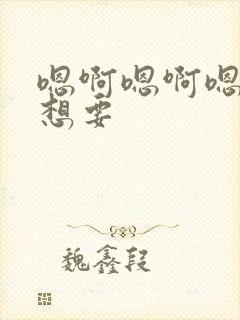 嗯啊嗯啊嗯
想要
魏鑫段